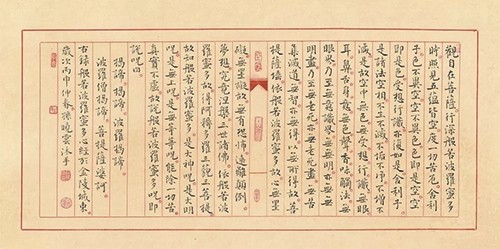 觀自在菩薩行深般若波羅蜜多
時照見五蘊皆空度一切苦厄舍利
子色不異空空不異色色即是空空
即是色受想行識亦復如是舍利子
是諸法空相不生不滅不垢不淨不增不
減是故空中無色無受想行識無眼
耳鼻舌身意無色聲香味觸法無
眼界乃至無意識界無無明亦無無
明盡乃至無老死亦無老死盡無苦
集滅道無智亦無得以無所得故菩
提薩埵依般若波羅蜜多故心無罣
礙無罣礙故無有恐怖遠離顛倒
夢想究竟涅槃三世諸佛依般若波
羅蜜多故得阿耨多羅三藐三菩提
故知般若波羅蜜多是大神咒是大明
咒是無上咒是無等等咒能除一切苦
真實不虛故說般若波羅蜜多咒即
說咒曰
揭諦揭諦 波羅揭諦
波羅僧揭諦 菩提薩婆訶
右錄般若波羅蜜多心經於金陵城東
歲次丙申仲春孫曉雲沐手